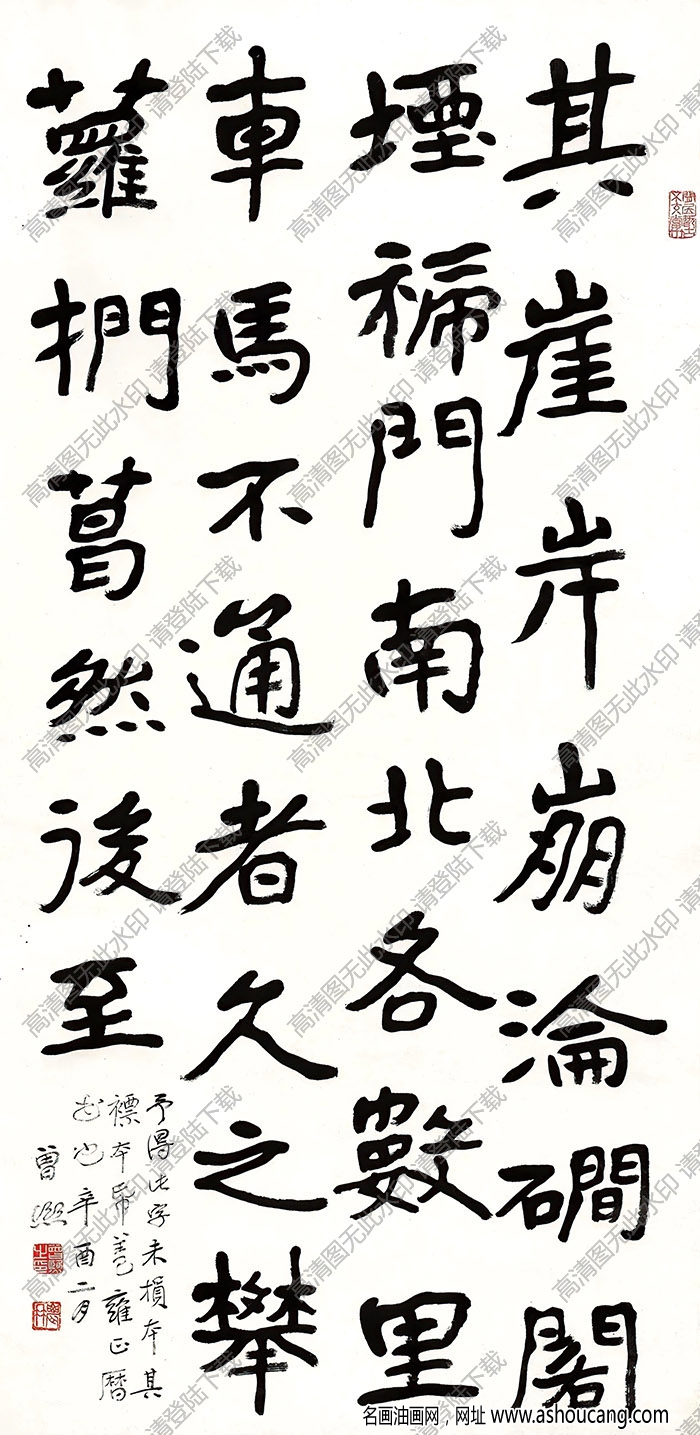 其崖岸崩淪磵閣
堙褫門南北各數里
車馬不通者久之攀
蘿捫葛然後至
予得此字未損本其
褾本帋蓋雍正曆
也辛酉二月
曾熙
高清图无此水印 请登陆下载
名画油画网，网址 www.ashoucang.com